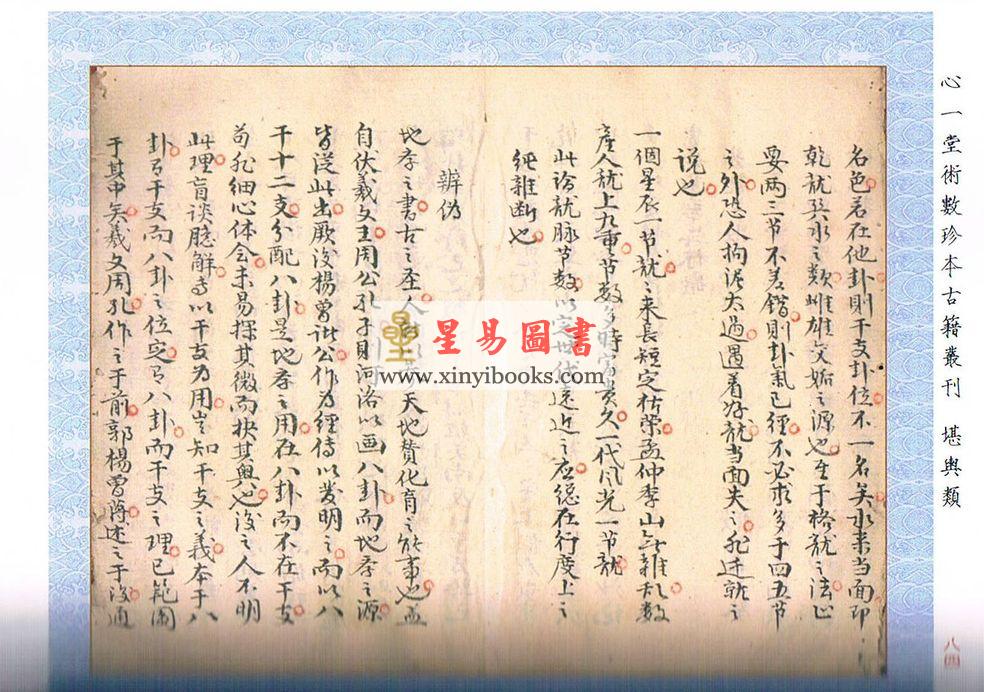 心一堂術數珍本古籍叢刊 堪輿類
名色若在他卦則干支卦位不一名矣水来当面即
乾龍巽水之類雌雄交姤之源也至于格龍之法止
要两三节不差錯則卦氣已經不必求多于四五节
之外恐人拘泥太過遇着好龍当面失之非迁就之
说也
一個星辰一节龍之来長短定枯榮孟仲季山無雜乱数
產人龍上九重节数多時富贵久一代风光一节龍
此论龍脉节数以定世代遠近之应總在行度上之
純雜断也
辨伪
地孝之書古之圣人天地贊化育之能事也盖
自伏羲文王周公孔子則河洛以画八卦而地孝之源
皆從此出厥後楊曾諸公作为經传以发明之而以八
干十二支分配八卦是地孝之用在八卦而不在干支
苟非细心体会未易探其微而抉其奥也後之人不明
此理盲谈臆解专以干支为用岂知干支之義本于八
卦有干支而八卦之位定有八卦而干支之理已範圍
于其中矣羲文周孔作之于前郭楊曾蔣述之于後通
星易圖書
www.xinyibooks.com
八四